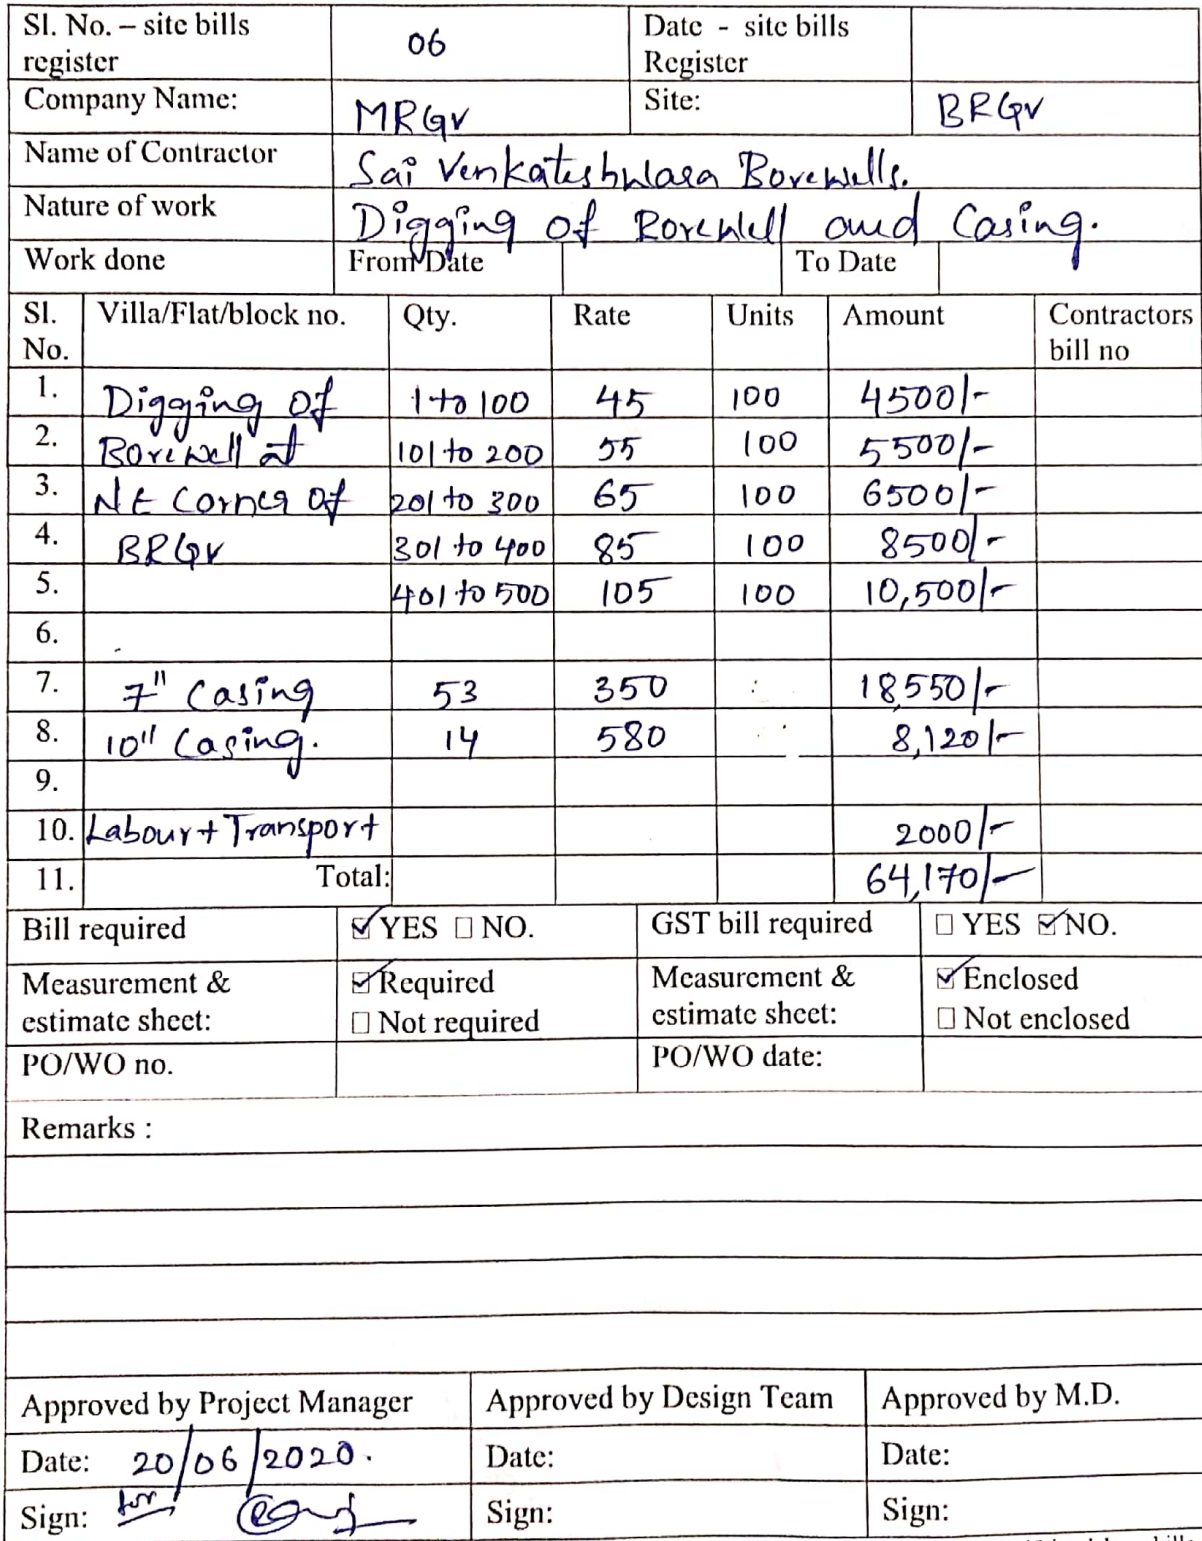 Sl. No. – site bills register 06 Date - site bills Register
Company Name: MRGV Site: BRGV
Name of Contractor Sai Venkateshwara Borewells.
Nature of work Digging of Borewell and Casing.
Work done From Date To Date
Sl. No. Villa/Flat/block no. Qty. Rate Units Amount Contractors bill no
1. Digging of 1 to 100 45 100 4500/-
2. Borewell at 101 to 200 55 100 5500/-
3. NE Corner of 201 to 300 65 100 6500/-
4. BRGV 301 to 400 85 100 8500/-
5. 401 to 500 105 100 10,500/-
6.
7. 7" Casing 53 350 18,550/-
8. 10" Casing. 14 580 8,120/-
9.
10. Labour + Transport 2000/-
11. Total: 64,170/-
Bill required ☑ YES ☐ NO. GST bill required ☐ YES ☑ NO.
Measurement & estimate sheet: ☑ Required ☐ Not required Measurement & estimate sheet: ☑ Enclosed ☐ Not enclosed
PO/WO no. PO/WO date:
Remarks :
Approved by Project Manager Approved by Design Team Approved by M.D.
Date: 20/06/2020. Date: Date:
Sign: for Sign: Sign: